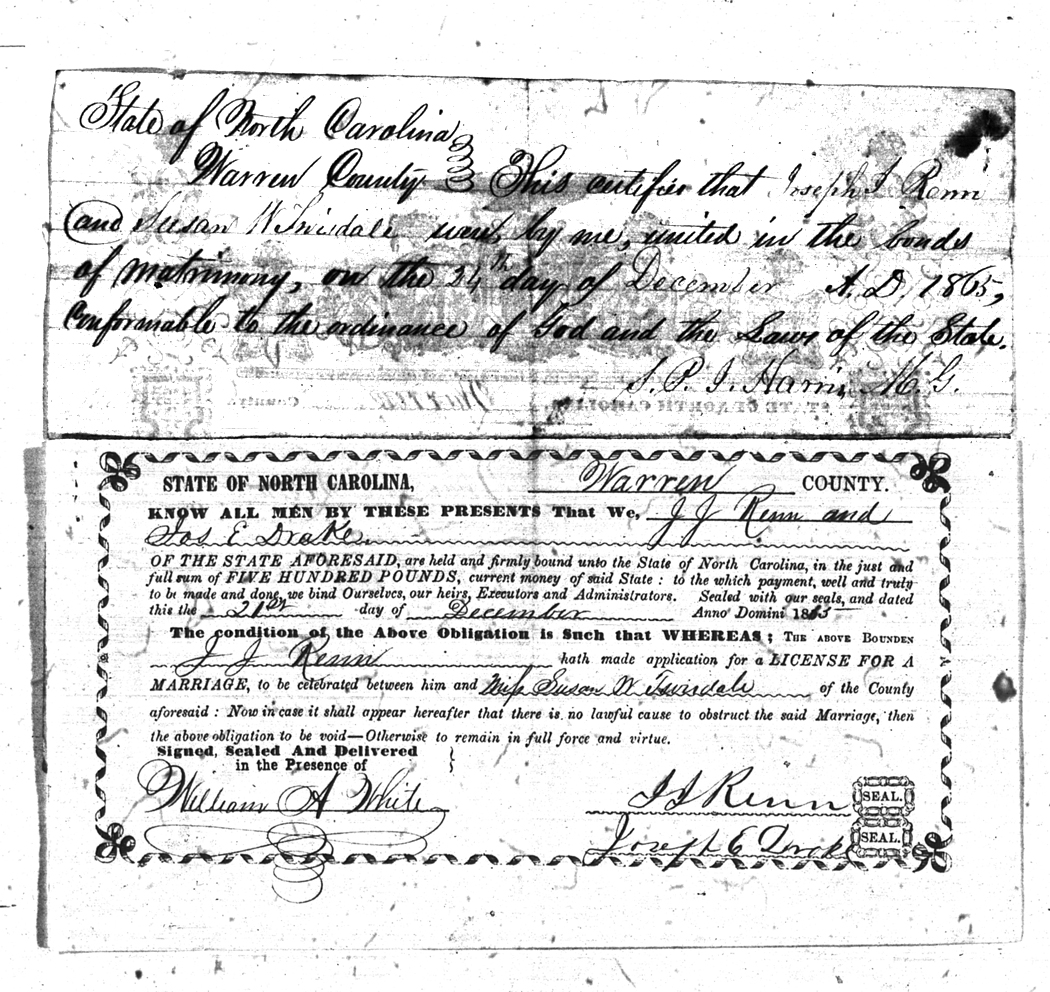 State of North Carolina
Warren County This certifies that Joseph J Renn
and Susan W Twisdale were, by me, united in the bonds
of matrimony, on the 24th day of December A. D. 1865,
Conformable to the ordinance of God and the Laws of the State.
Harris M. G.
County Warren STATE OF NORTH CAROLINA
STATE OF NORTH CAROLINA, Warren COUNTY.
KNOW ALL MEN BY THESE PRESENTS That We, J J Renn and
Jos E Drake
OF THE STATE AFORESAID, are held and firmly bound unto the State of North Carolina, in the just and
full sum of FIVE HUNDRED POUNDS, current money of said State : to the which payment, well and truly
to be made and done, we bind Ourselves, our heirs, Executors and Administrators. Sealed with our seals, and dated
this the 21st day of December Anno Domini 1865
The condition of the Above Obligation is Such that WHEREAS ; THE ABOVE BOUNDEN
J J Renn hath made application for a LICENSE FOR A
MARRIAGE, to be celebrated between him and Miss Susan W Twisdale of the County
aforesaid : Now in case it shall appear hereafter that there is no lawful cause to obstruct the said Marriage, then
the above obligation to be void—Otherwise to remain in full force and virtue.
Signed, Sealed And Delivered
in the Presence of
William A White
J J Renn SEAL.
Joseph E Drake SEAL.